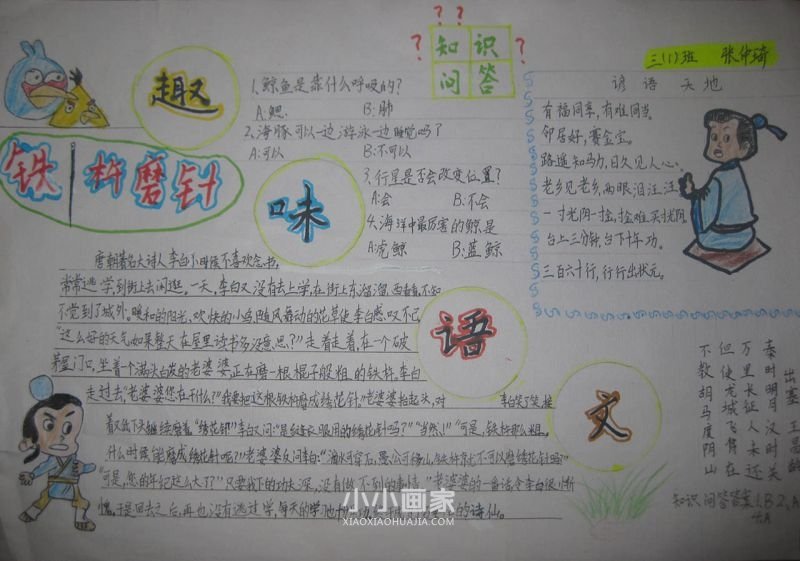 三(1)班 张仲琦
趣
味
语
文
? ?
? ?
知识
问答
1.鲸鱼是靠什么呼吸的?
A:鳃 B:肺
2.海豚可以一边游泳一边睡觉吗?
A:可以 B:不可以
3.行星是否会改变位置?
A:会 B:不会
4.海洋中最厉害的鲸是
A:虎鲸 B:蓝鲸
谚语天地
有福同享,有难同当。
邻居好,赛金宝。
路遥知马力,日久见人心。
老乡见老乡,两眼泪汪汪
一寸光阴一寸金,寸金难买寸光阴
台上三分钟,台下十年功。
三百六十行,行行出状元。
铁杵磨针
唐朝著名大诗人李白小时候不喜欢念书,
常常逃学到街上去闲逛。一天,李白又没有去上学,在街上东溜溜,西看看,不知
不觉到了城外。暖和的阳光,欢快的小鸟,随风摇动的花草使李白感叹不已
"这么好的天气如果整天在屋里读书多没意思?"走着走着,在一个破
茅屋门口,坐着个满头白发的老婆婆,正在磨一根棍子般粗的铁杵。李白
走过去,"老婆婆您在干什么?"我要把这根铁杵磨成绣花针。"老婆婆抬起头,对李白笑了笑,接
着又低下头继续磨着。"绣花针?"李白又问:"是缝衣服用的绣花针吗?""当然!""可是,铁杵那么粗,
什么时候能磨成绣花针呢?"老婆婆反问李白:"滴水可穿石,愚公可移山,铁杵为什么不可以磨绣花针呢?"
"可是,您的年纪这么大了?""只要我下的功夫深,没有做不到的事情。"老婆婆的一番话,令李白很惭
愧。于是回去之后,再也没有逃过学,每天的学习也特别 的诗仙。
出塞 王昌龄
秦时明月汉时关
万里长征人未还
但使龙城飞将在
不教胡马度阴山
知识问答答案1.B 2.A
4.A
小小画家
XIAOXIAOHUAJIA.COM